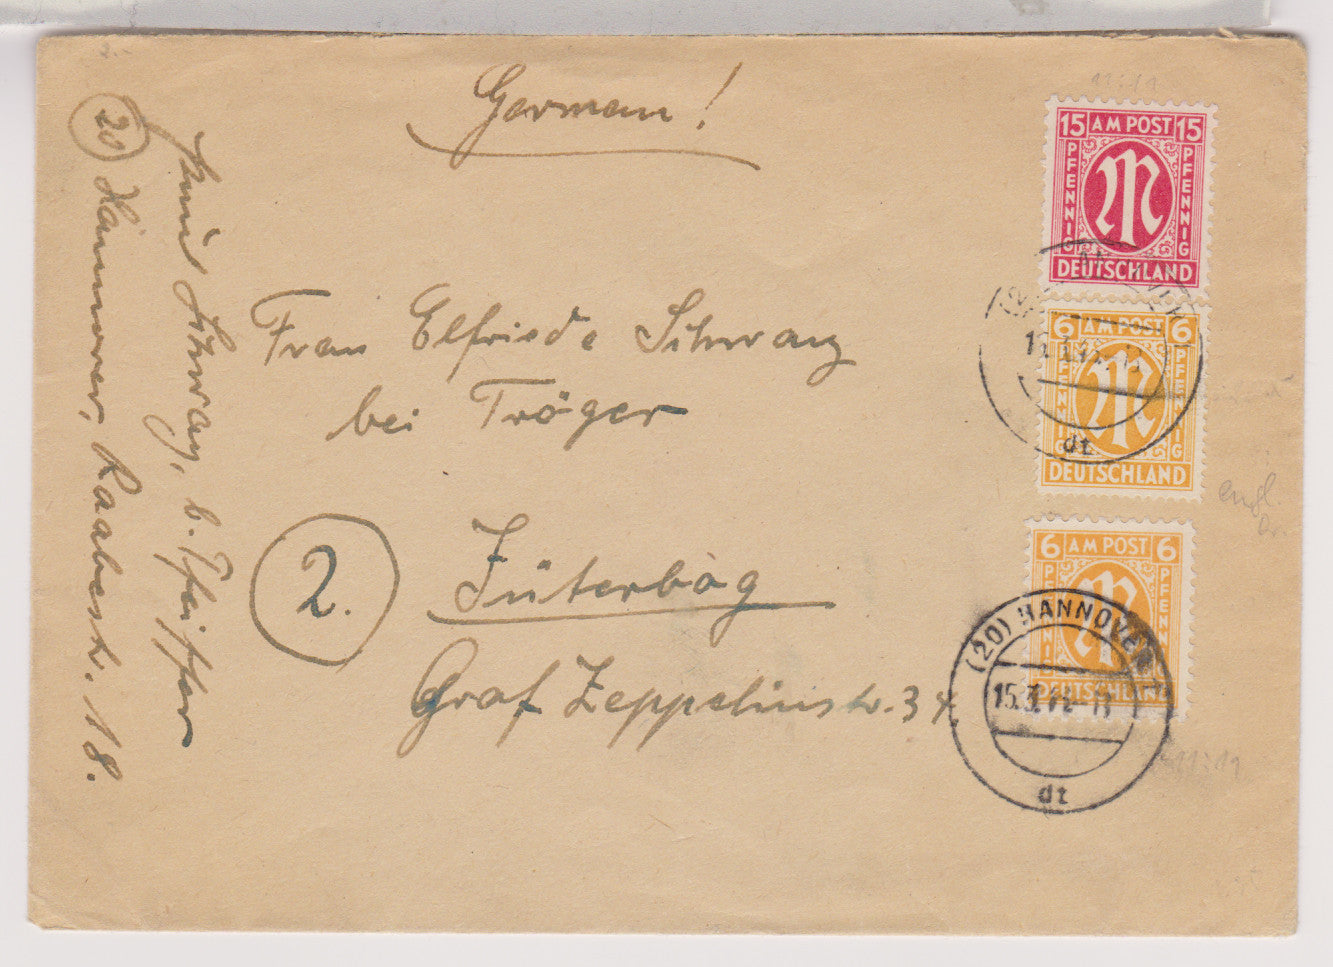 German!
Frau Elfriede Schwarz
bei Tröger
2.
Jüterbog
Graf Zeppelinstr. 34
Schwarz, b. Pfeiffer
20 Hannover, Raabestr. 18.
15 AM POST 15
PFENNIG PFENNIG
DEUTSCHLAND
6 AM POST 6
PFENNIG PFENNIG
DEUTSCHLAND
dt
6 AM POST 6
PFENNIG
DEUTSCHLAND
(20) HANNOVER 1
dt
engl.
Dr.